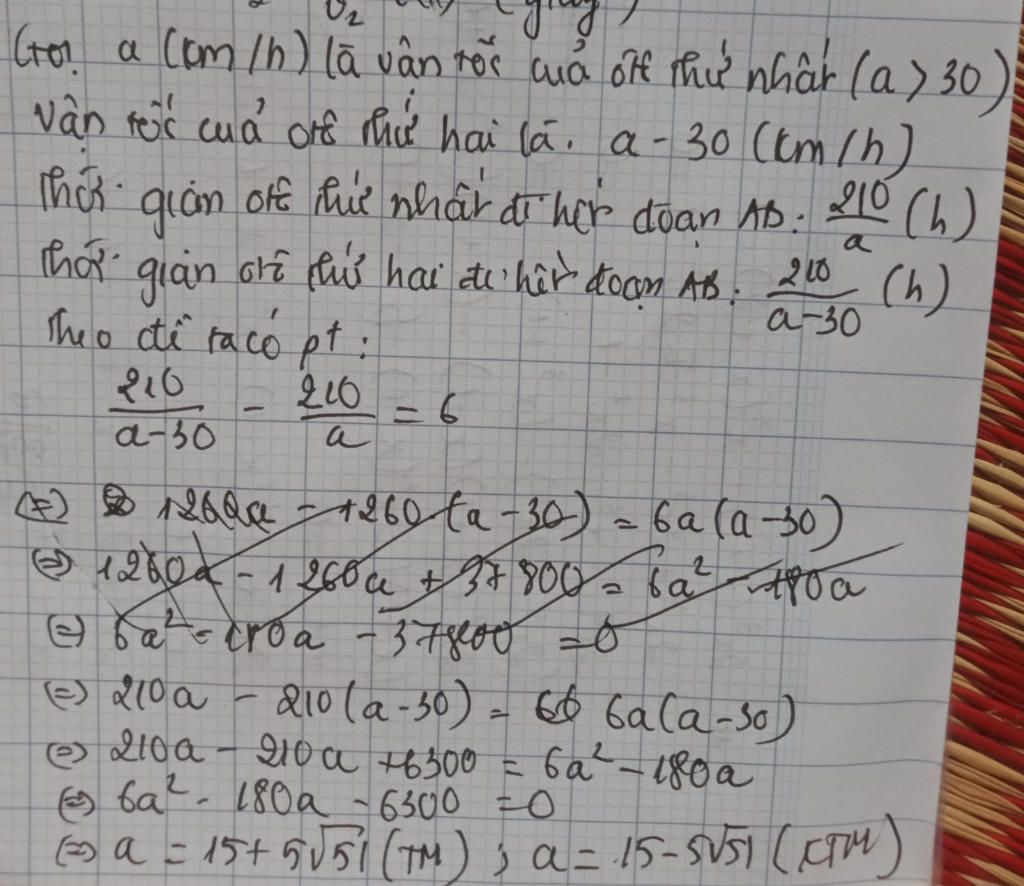 Gọi a (km/h) là vận tốc của ôtô thứ nhất (a > 30)
Vận tốc của ôtô thứ hai là: a - 30 (km/h)
Thời gian ôtô thứ nhất đi hết đoạn AB: 210/a (h)
Thời gian ôtô thứ hai đi hết đoạn AB: 210/(a-30) (h)
Theo đề ta có pt:
210/(a-30) - 210/a = 6
(=) 1260a - 1260 (a - 30) = 6a(a-30)
(=) 1260a - 1260a + 37800 = 6a² - 180a
(=) 6a² - 180a - 37800 = 0
(=) 210a - 210(a-30) = 6a(a-30)
(=) 210a - 210a + 6300 = 6a² - 180a
(=) 6a² - 180a - 6300 = 0
(=) a = 15 + 5√51 (TM) ; a = 15 - 5√51 (KTM)